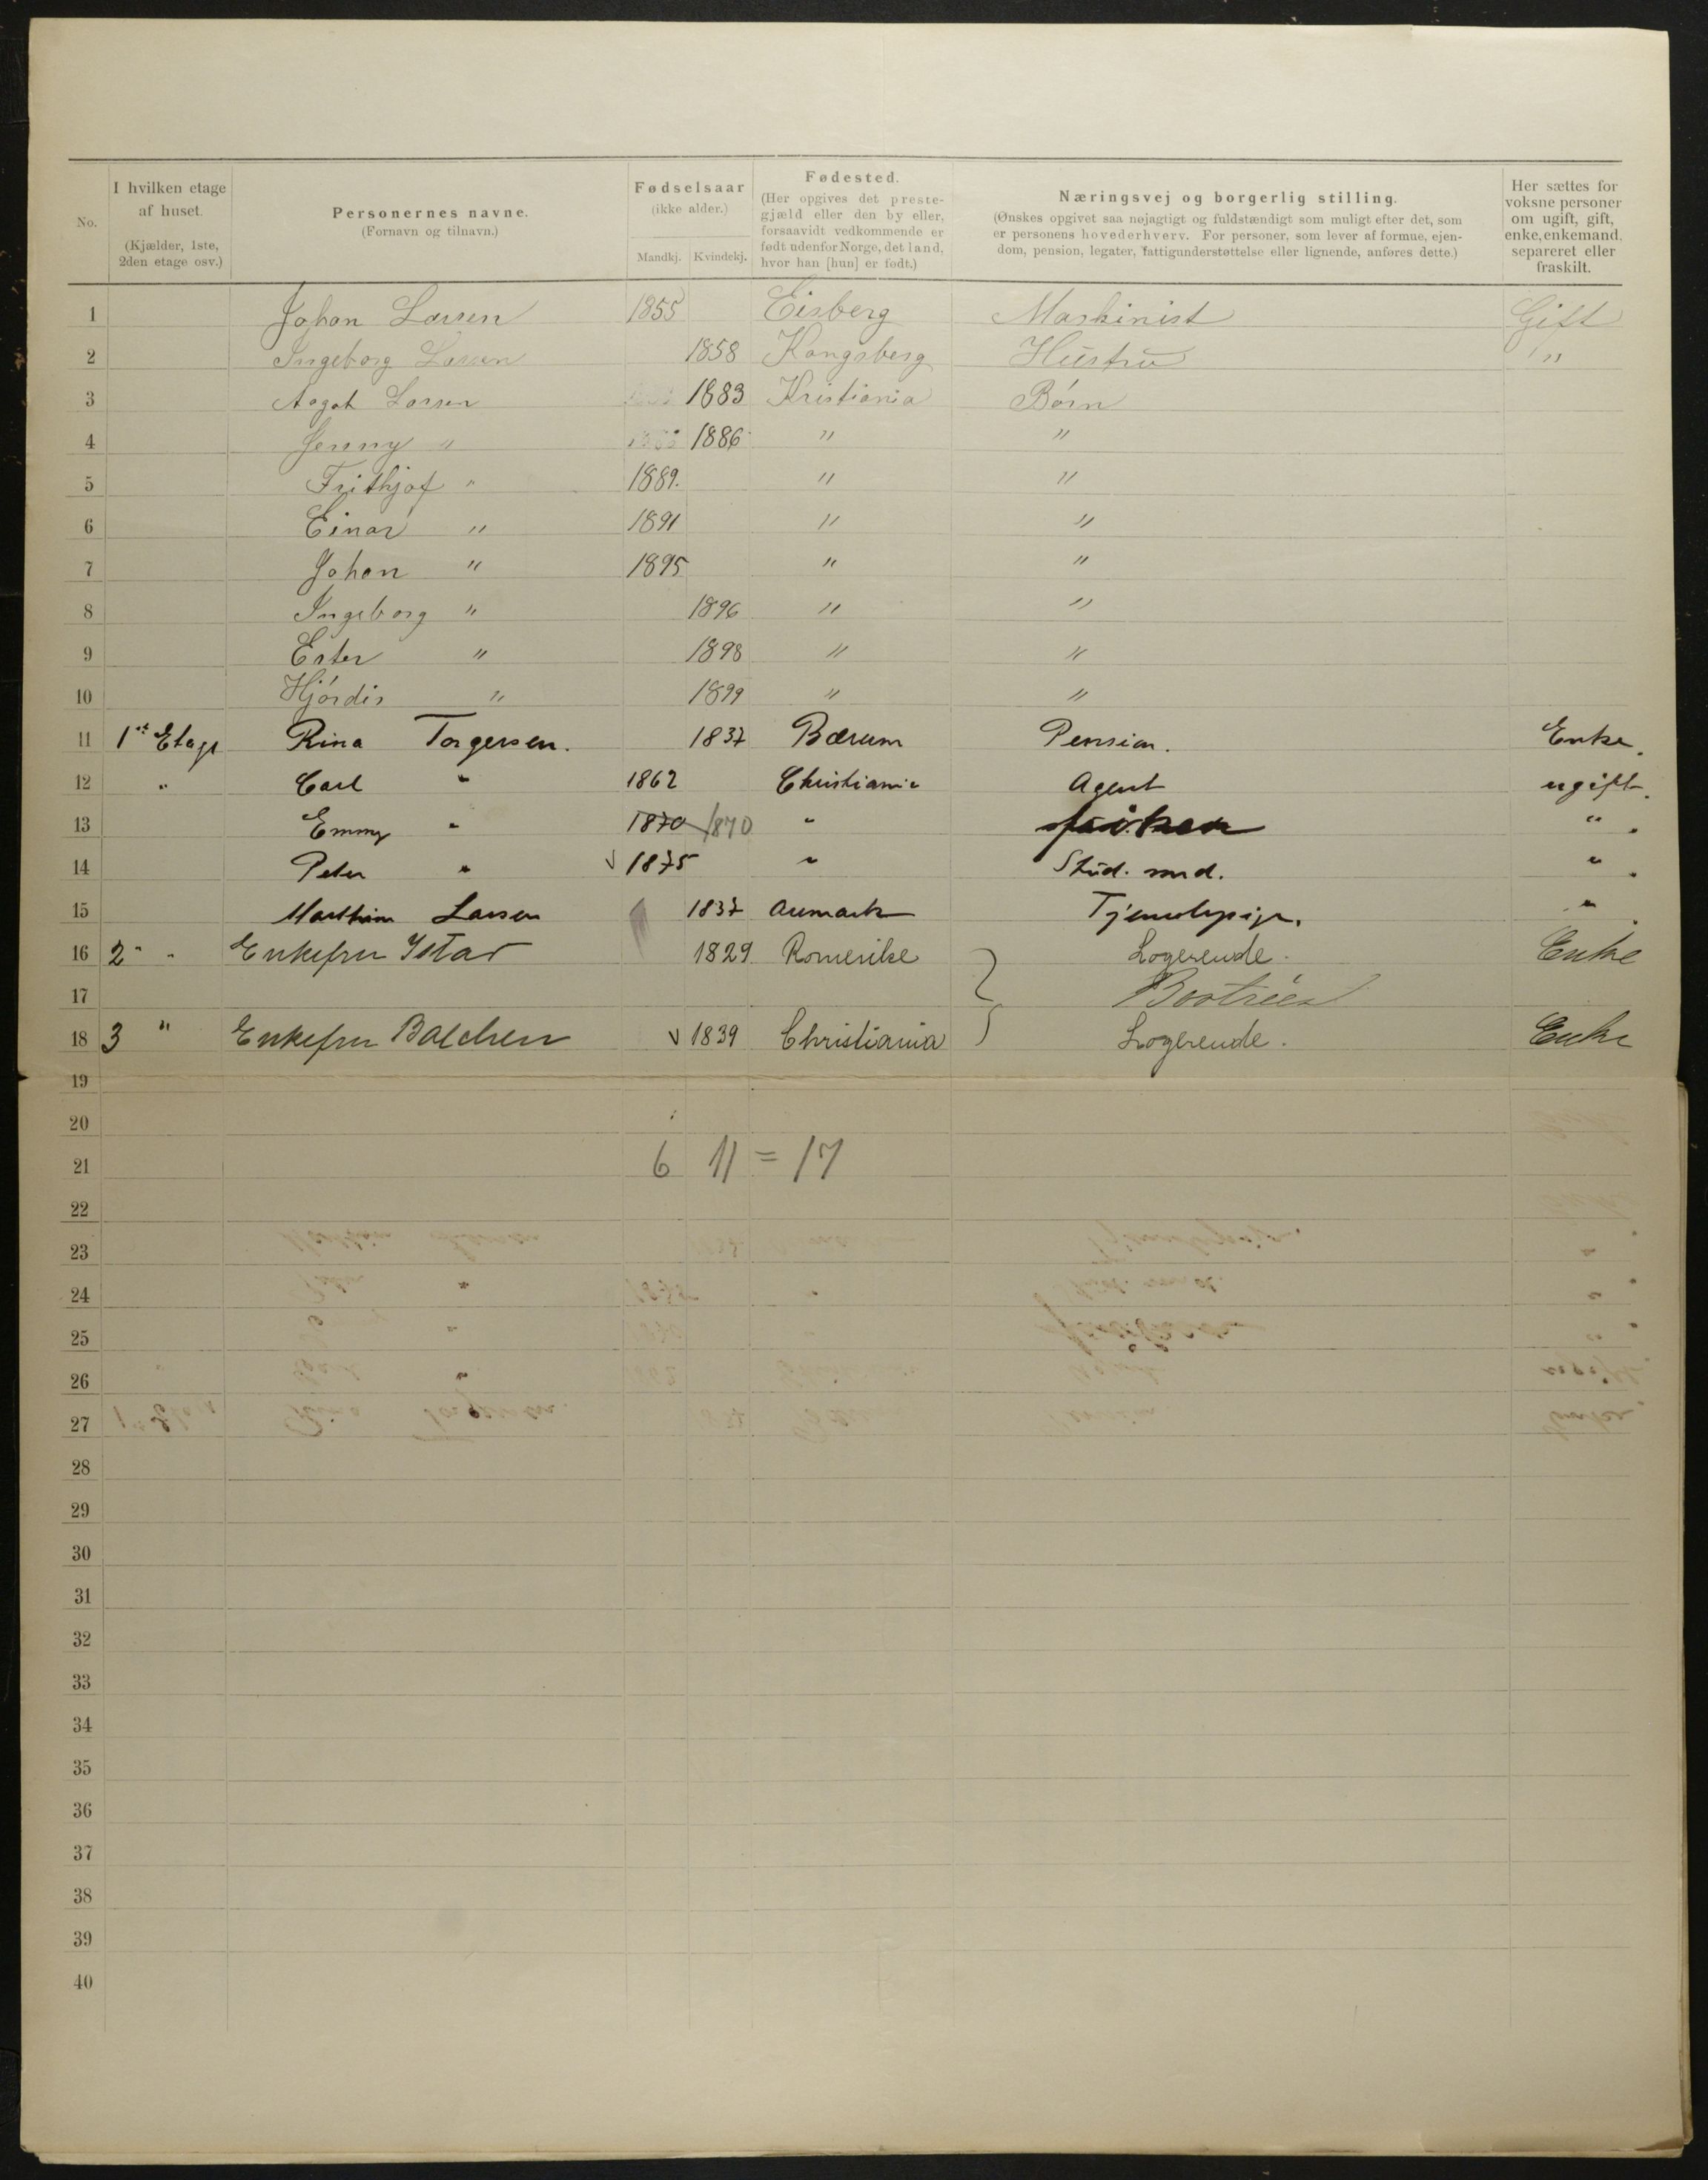 No.
I hvilken etage af huset. (Kjælder, 1ste, 2den etage osv.)
Personernes navne. (Fornavn og tilnavn.)
Fødselsaar (ikke alder.) Mandkj. Kvindekj.
Fødested. (Her opgives det prestegjæld eller den by eller, forsaavidt vedkommende er født udenfor Norge, det land, hvor han [hun] er født.)
Næringsvej og borgerlig stilling. (Ønskes opgivet saa nøjagtigt og fuldstændigt som muligt efter det, som er personens hovederhverv. For personer, som lever af formue, ejendom, pension, legater, fattigunderstøttelse eller lignende, anføres dette.)
Her sættes for voksne personer om ugift, gift, enke, enkemand, separeret eller fraskilt.
1 Johan Larsen 1855 Eisberg Maskinist Gift
2 Ingeborg Larsen 1858 Kongsberg Hustru "
3 Aagot Larsen 1883 Kristiania Börn
4 Jenny " 1886 " "
5 Frithjof " 1889. " "
6 Einar " 1891 " "
7 Johan " 1895 " "
8 Ingeborg " 1896 " "
9 Ester " 1898 " "
10 Hjördis " 1899 " "
11 1st Etage Rina Torgersen. 1837 Bærum Pension. Enke.
12 " Carl " 1862 Christiania Agent ugift.
13 Emmy " 1870 1870 " " .
14 Peter " 1875 " Stud. med. " .
15 Larsen 1837 Aremark Tjenestepige. " .
16 2 " " Enkefru 1829 Romerike Logerende. Enke
17
18 3 " Enkefru Balchen 1839 Christiania Logerende. Enke
19
20
21 6 11 = 17
22
23
24
25
26
27
28
29
30
31
32
33
34
35
36
37
38
39
40